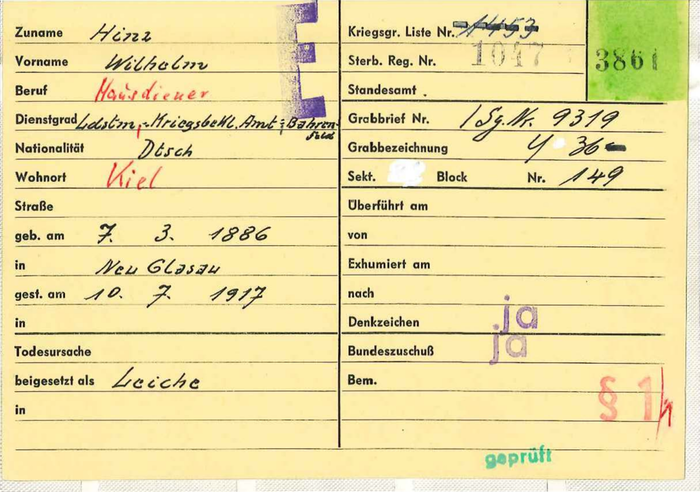 Zuname Hinz
Vorname Wilhelm
Beruf Hausdiener
Dienstgrad Ldstm.-Kriegsbekl. Amt-Bahrenfeld
Nationalität Dtsch
Wohnort Kiel
Straße
geb. am 7. 3. 1886
in Neu Glasau
gest. am 10. 7. 1917
in
Todesursache
beigesetzt als Leiche
in
E
Kriegsgr. Liste Nr. 1453
Sterb. Reg. Nr. 1047
3861
Standesamt .
Grabbrief Nr. / Sg. Nr. 9319
Grabbezeichnung Y 36
Sekt. Block Nr. 149
Überführt am
von
Exhumiert am
nach
Denkzeichen ja
Bundeszuschuß ja
Bem.
§ 1
geprüft